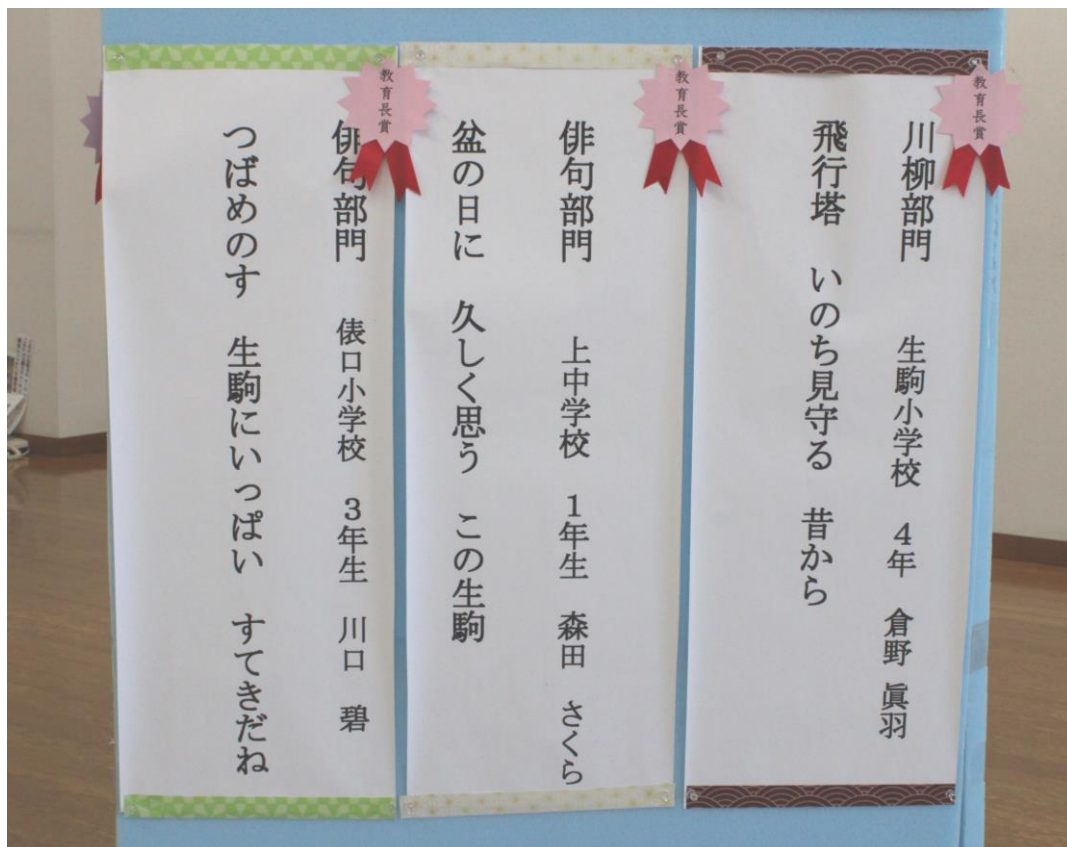 教育長賞
川柳部門 生駒小学校 4年 倉野 眞羽
飛行塔 いのち見守る 昔から
教育長賞
俳句部門 上中学校 1年生 森田 さくら
盆の日に 久しく思う この生駒
教育長賞
俳句部門 俵口小学校 3年生 川口 碧
つばめのす 生駒にいっぱい すてきだね